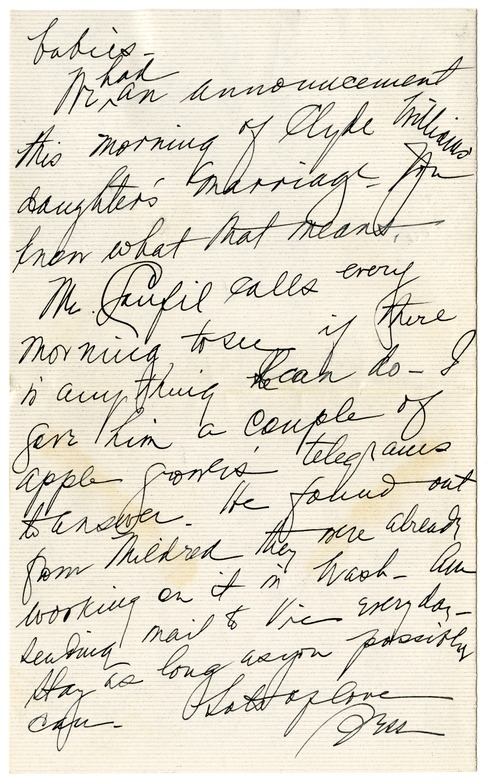 babies-
We had an announcement
this morning of Clyde Williams'
daughter's marriage- You
know what that means.
Mr. Canfil calls every
morning to see if there
is anything he can do- I
gave him a couple of
apple growers' telegrams
to answer. He found out
from Mildred they were already
working on it in Wash- Am
sending mail to Vic every day-
Stay as long as you possibly
can- Lots of love
Bess